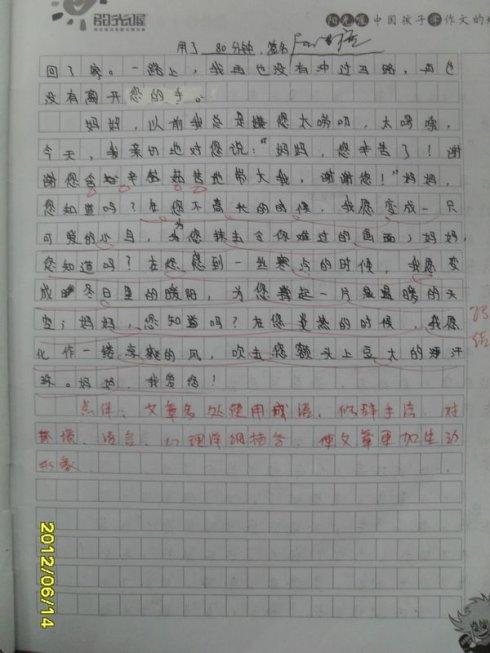 阳光喔
阳光喔 中国孩子 作文的
用了 80 分钟,签名
回了家。一路上,我再也没有冲过马路,再也
没有离开您的手。
妈妈,以前我总是嫌您太唠叨,太啰嗦,
今天,我亲切地对您说:“妈妈,您辛苦了!谢
谢您含辛茹苦地带大我,谢谢您!”妈妈,
您知道吗?在您不高兴的时候,我愿变成一只
可爱的小鸟,为您抹去令你难过的画面;妈妈,
您知道吗?在您感到一丝寒冷的时候,我愿变
成冬日里的暖阳,为您撑起一片温暖的天
空;妈妈,您知道吗?在您炎热的时候,我愿
化作一缕凉爽的风,吹去您额头上豆大的汗
珠。妈妈,我爱您!
点评:文章多处使用成语、修辞手法,对
语言、心理详细描写,使文章更加生动
形象。
2012/06/14